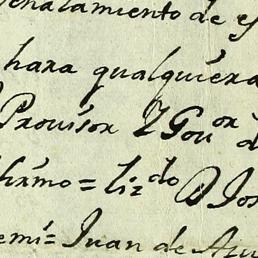 señalamiento de es
hara qualquiera
Provisor y Gov.or d
firmo = liz.do D Jos
emi= Juan de Azu